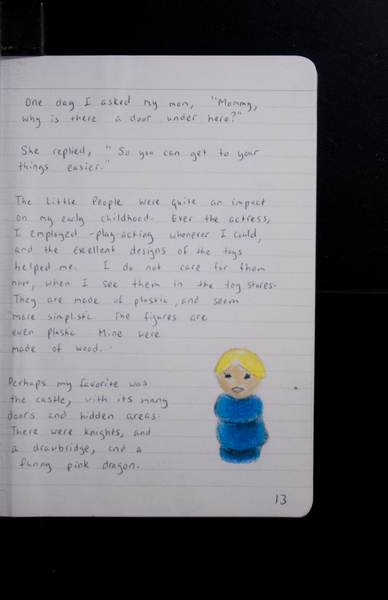 One day I asked my mom, "Mommy,
why is there a door under here?"
She replied, "So you can get to your
things easier."
The Little People were quite an impact
on my early childhood. Ever the actress,
I employed play-acting whenever I could,
and the excellent designs of the toys
helped me. I do not care for them
now, when I see them in the toy stores.
They are made of plastic, and seem
more simplistic. The figures are
even plastic. Mine were
made of wood.
Perhaps my favorite was
the castle, with its many
doors and hidden areas.
There were knights, and
a drawbridge, and a
funny pink dragon.
13